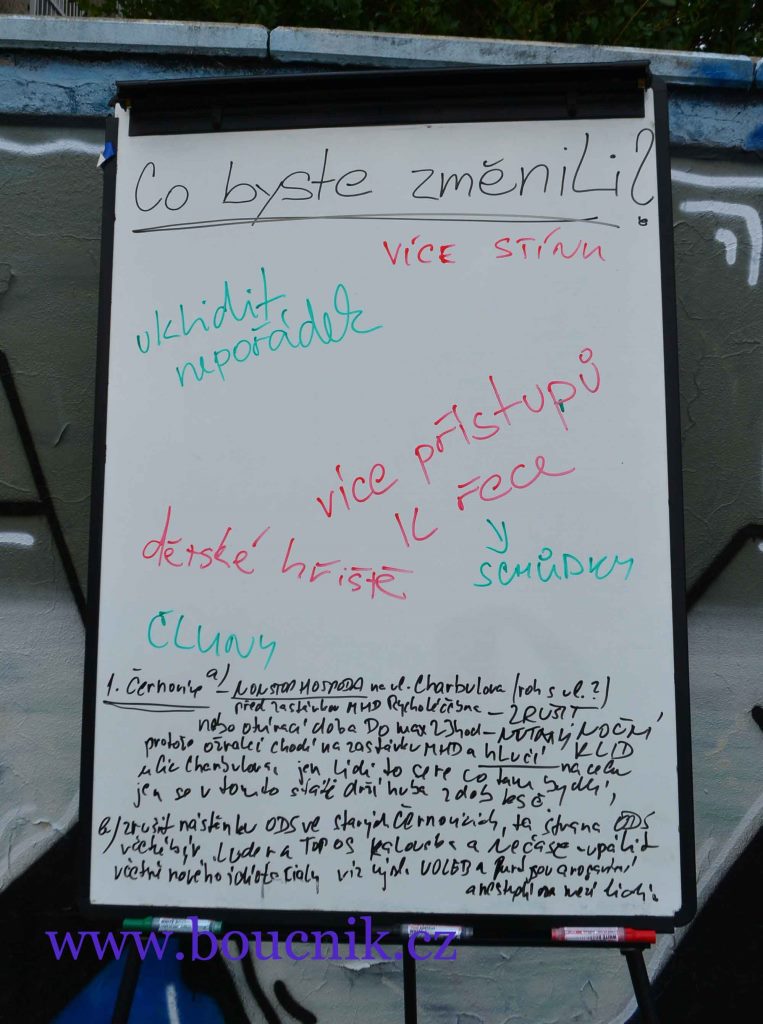 Co byste změnili?
VÍCE STÍNU
uklidit
nepořádek
více přístupů
k řece
děťské hřiště
SCHŮDKY
ČLUNY
1. Černovice a) – NONSTOP HOSPODA na ul. Charbulova (roh s ul. ?)
před zastávkou MHD Rycholéčebna – ZRUŠIT
nebo otvírací doba Do max 23hod – NUTNÝ NOČNÍ
protože ožralci chodí na zastávku MHD a hlučí KLID
ulic Charbulova, jen lidi to sere co tam bydlí,
jen se v tomto státě drží huba
b) zrušit nástěnku ODS ve starých Černovicích, ta strana ODS
TOP 09 Kalouska a Nečase upálit
včetně nového idiota viz VOLEB a jsou arogantní
mezi lidi.
www.boucnik.cz